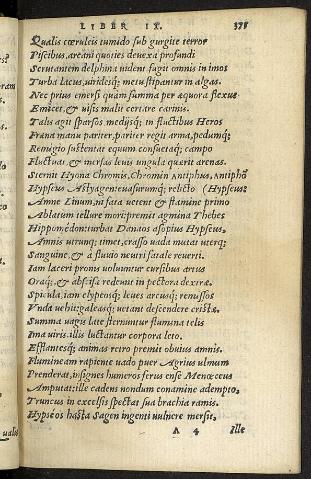 LIBER IX. 375
Qualis cœruleis tumido sub gurgite terror
Piscibus, arcani quoties deuexa profundi
Scrutantem delphina uident fugit omnis in imos
Turba lacus, uiridesq; metu stipantur in algas.
Nec prius emersi quàm summa per æquora flexus
Emicet, & uisis malit certare carinis.
Talis agit sparsos medijsq; in fluctibus Heros
Fræna manu pariter, pariter regit arma, pedumq;
Remigio sustentat equum consuetaq; campo
Fluctuat, & mersas leuis ungula quærit arenas.
Sternit Hyona Chromis, Chromin Antiphus, Antiphõ
Hypseus Astyagen: euasurumq; relicto (Hypseus:
Amne Linum, ni fata uetent & stamine primo
Ablatum tellure mori: premit agmina Thebes
Hippomedon: turbat Danaos asopius Hypseus,
Amnis utrunq; timet, crasso uada mutat uterq;
Sanguine, & à fluuio neutri fatale reuerti.
Iam laceri pronis uoluuntur cursibus artus
Oraq;, & abscisæ redeunt in pectora dextræ.
Spicula, iam clypeosq; leues arcusq; remissos
Vnda uehit: galeasq; uetant descendere cristæ.
Summa uagis late sternuntur flumina telis
Ima uiris. illic luctantur corpora leto.
Efflantesq; animas retro premit obuius amnis.
Flumineam rapiente uado puer Agrius ulmum
Prenderat, insignes humeros ferus ense Menœceus
Amputat: ille cadens nondum conamine adempto,
Truncus in excelsis spectat sua brachia ramis.
Hypseos hasta Sagen ingenti uulnere mersit,
A 4 ille
ualis